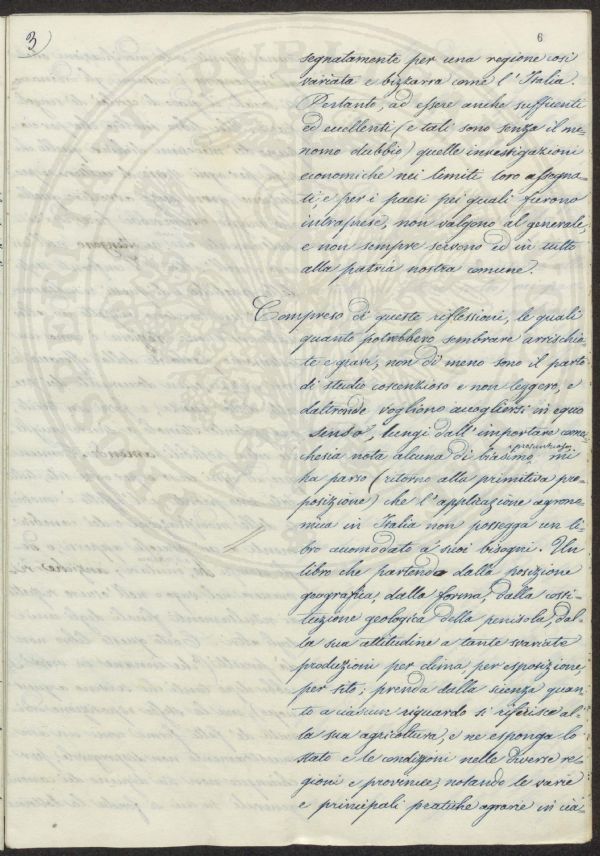 3
6
segnatamente per una regione così
variata e bizzarra come l'Italia.
Pertanto, ad essere anche sufficienti
ed eccellenti (e tali sono senza il me-
nomo dubbio) quelle investigazioni
economiche nei limiti loro assegna-
ti, e per i paesi pei quali furono
intraprese, non valgono al generale
e non sempre servono ed in tutto
alla patria nostra comune.
Compreso di queste riflessioni, le quali
quanto potrebbero sembrare arrischia-
te e gravi, non di meno sono il parto
di studio coscenzioso e non leggero, e
daltronde vogliono accogliersi in equo
senso, lungi dall'importare
chesia nota alcuna di biasimo presuntuoso mi
ha parso (ritorno alla primitiva pro-
posizione) che l'applicazione agrono-
mica in Italia non possegga un li-
bro accomodato a' suoi bisogni. Un
libro che partendo dalla posizione
geografica, dalla forma, dalla costi-
tuzione geologica della penisola, dal-
la sua attitudine a tante svariate
produzioni per clima, per esposizione,
per sito; prenda dalla scienza quan-
to a ciascun riguardo si riferisce al-
la sua agricoltura, e ne esponga lo
stato e le condizioni nelle diverse re-
gioni e provincie; notando le varie
e principali pratiche agrarie in cia-